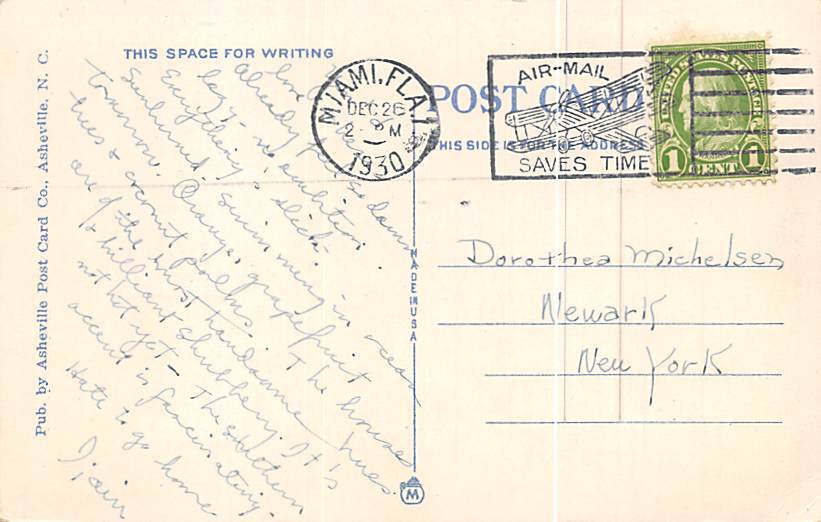 THIS SPACE FOR WRITING
POST CARD
THIS SIDE IS FOR THE ADDRESS
MIAMI, FLA. 1
DEC 26
2 - PM
1930
AIR-MAIL
SAVES TIME
UNITED STATES POSTAGE
1 CENT 1
already feel so damn
lazy - no ambition.
Everything is slick -
swimming in ocean
tomorrow. Oranges, grapefruit
trees & coconut palms. The houses
are of the most handsome hues
& brilliant shrubbery. It's
not hot yet - The southern
accent is fascinating.
Hate to go home
Dorothea Michelsen
Newark
New York
MADE IN USA
M
Pub. by Asheville Post Card Co., Asheville, N. C.